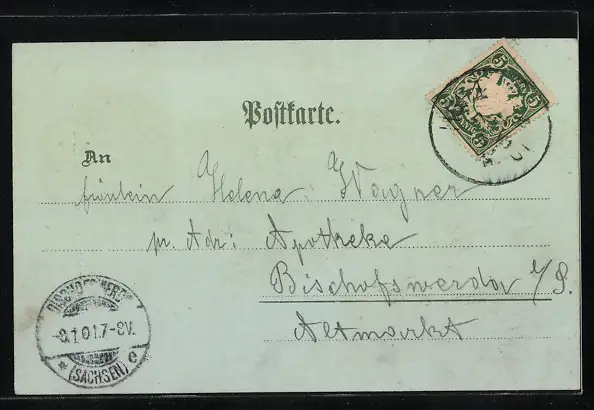 5 5
5 5
Postkarte.
An
Fräulein Helena Wagner
pr. Adr: Apotheke
Bischofswerda i/S.
Altmarkt
BISCHOFSWERDA
-8.1.01.7-8V.
* (SACHSEN) e